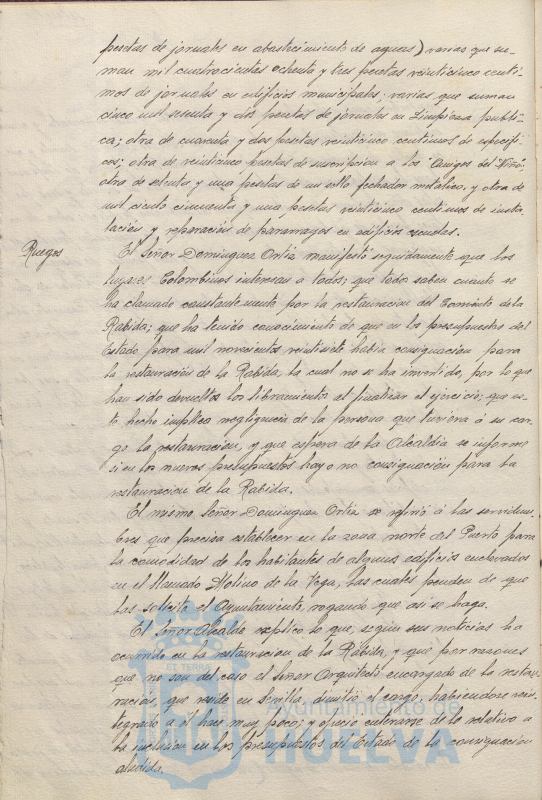 pesetas de jornales en abastecimiento de aguas) varias que su-
man mil cuatrocientas ochenta y tres pesetas veinticinco centi-
mos de jornales en edificios municipales; varias que suman
cinco mil setenta y dos pesetas de jornales en Limpieza públi-
ca; otra de cuarenta y dos pesetas veinticinco centimos de específi-
cos; otra de veinticinco pesetas de suscripcion a los "Amigos del Niño,
otra de setenta y una pesetas de un sello fechador metalico y otra de
mil ciento cincuenta y una pesetas veinticinco centimos de insta-
lación y reparación de pararrayos en edificios escuelas.
Ruegos
El Señor Dominguez Ortiz manifestó seguidamente que los
lugares Colombinos interesan a todos; que todos saben cuanto se
ha clamado constantemente por la restauracion del Convento de la
Rabida; que ha tenido conocimiento de que en los presupuestos del
Estado para mil novecientos veintisiete habia consignacion para
la restauración de la Rabida, la cual no se ha invertido, por lo que
han sido devueltos los libramientos al finalizar el ejercicio; que es-
te hecho implica negligencia de la persona que tuviera á su car-
go la restauracion, y que espera de la Alcaldia se informe
si en los nuevos presupuestos hay o no consignación para la
restauracion de la Rabida.
El mismo Señor Dominguez Ortiz se refirió á las servidum-
bres que precisa establecer en la zona norte del Puerto para
la comodidad de los habitantes de algunos edificios enclavados
en el llamado Molino de la Vega, las cuales penden de que
las solicite el Ayuntamiento, rogando que asi se haga.
El Señor Alcalde explicó lo que, según sus noticias ha
ocurrido en la restauracion de la Rabida, y que por razones
que no son del caso el Señor Arquitecto encargado de la restau-
racion, que reside en Sevilla, dimitió el cargo, habiendose rein-
tegrado a él hace muy poco; y ofreció enterarse de lo relativo a
la inclusion en los presupuestos del Estado de la consignacion
aludida.
ET TERRA
Ayuntamiento de
HUELVA